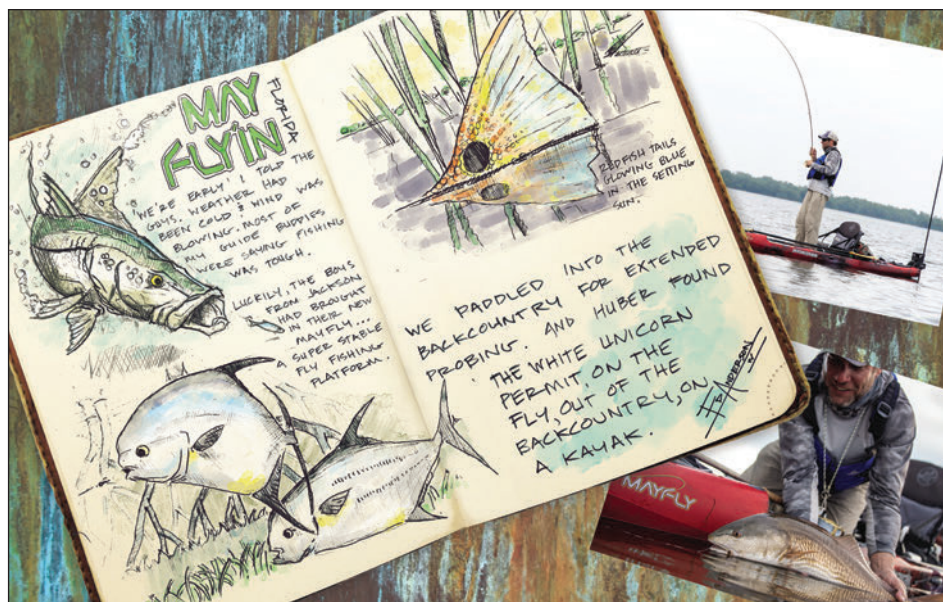 MAY
FLYIN
FLORIDA
"WE'RE EARLY", I TOLD THE
GUYS. WEATHER HAD
BEEN COLD & WIND WAS
BLOWING. MOST OF
MY GUIDE BUDDIES
WERE SAYING FISHING
WAS TOUGH.
LUCKILY, THE BOYS
FROM JACKSON
HAD BROUGHT
IN THEIR NEW
MAYFLY...
A SUPER STABLE
FLY FISHING
PLATFORM.
REDFISH TAILS
GLOWING BLUE
IN THE SETTING
SUN.
WE PADDLED INTO THE
BACKCOUNTRY FOR EXTENDED
PROBING. AND HUBER FOUND
THE WHITE UNICORN
PERMIT, ON THE
FLY, OUT OF THE
BACKCOUNTRY, ON
A KAYAK.
ANDERSON
MAYFLY